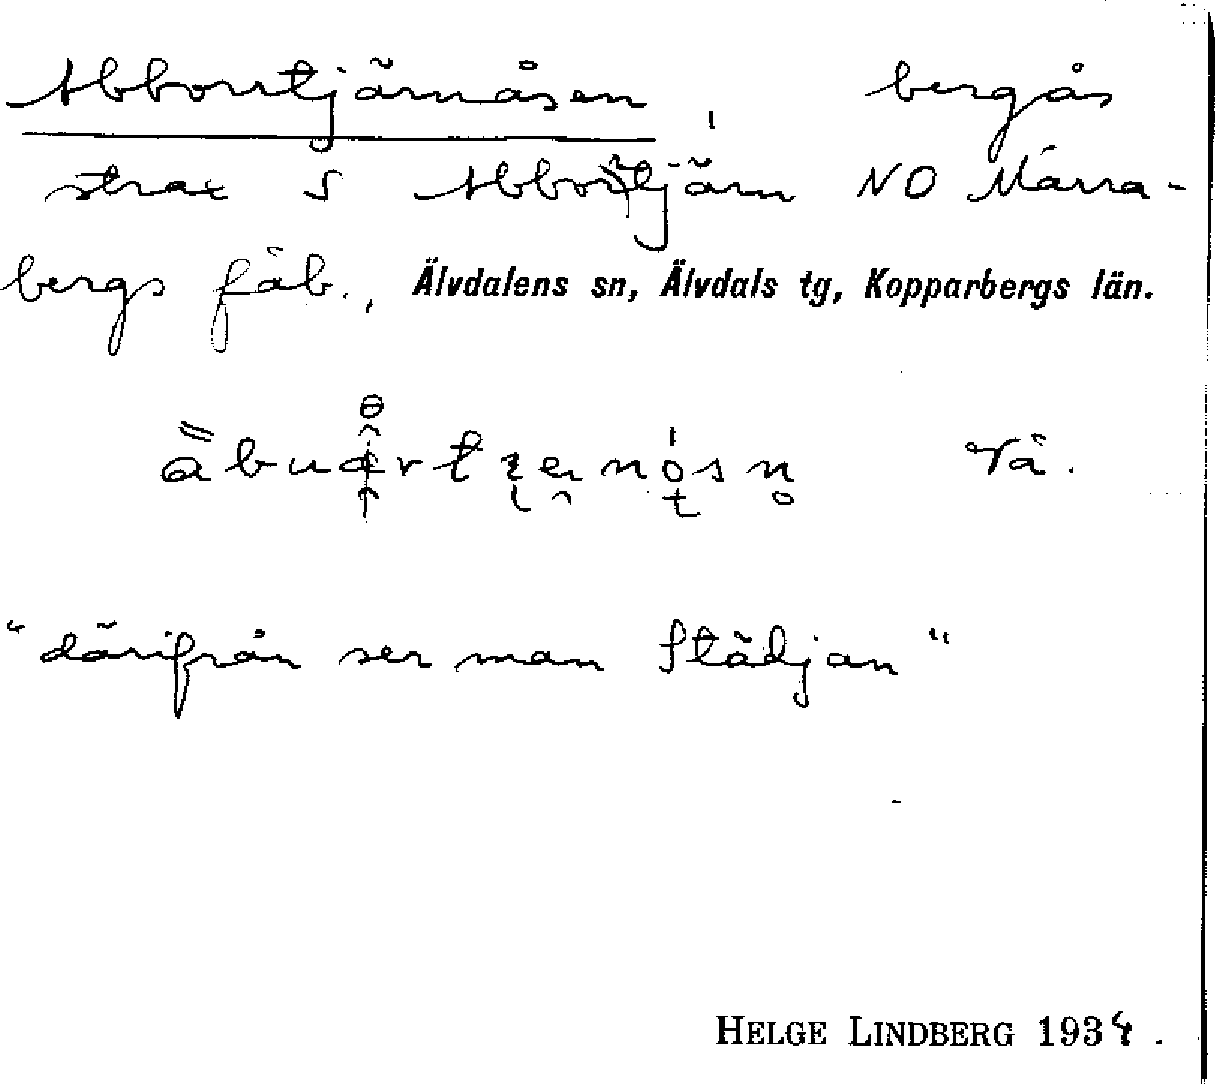 Abborrtjärnåsen, bergås
strax S Abborrtjärn NO Márra-
bergs fäb., Älvdalens sn, Älvdals tg, Kopparbergs län.
Vä.
"därifrån ser man Städjan"
HELGE LINDBERG 1934.